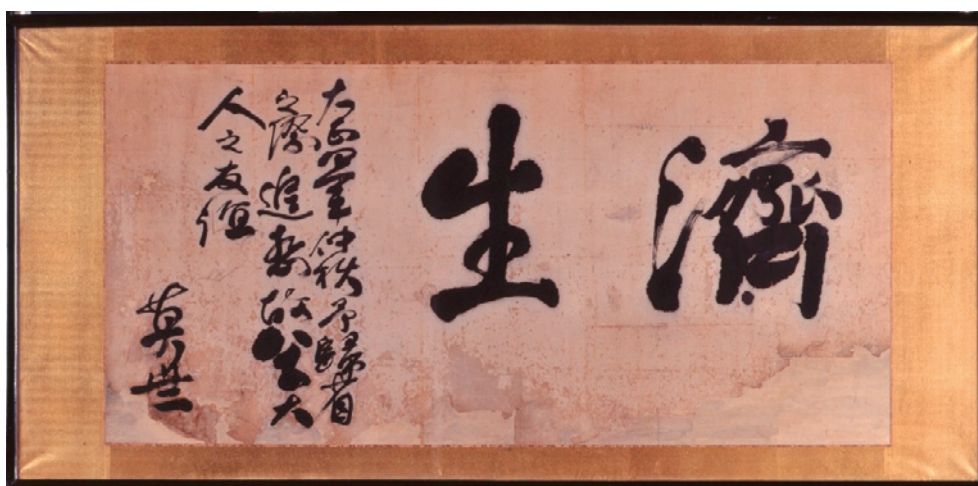 濟生
大正四年仲秋予歸省
之際追故大
人之友誼
英世